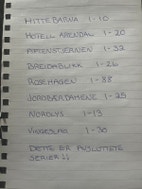 HITTEBARNA 1-10
HOTELL ARENDAL 1-20
AFTENSTJERNEN 1-32
BREIDABLIKK 1-26
ROSEHAGEN 1-38
JORDBÆRDAMENE 1-25
NORDLYS 1-13
VINGESLAG 1-30
DETTE ER AVSLUTTETE
SERIER !!